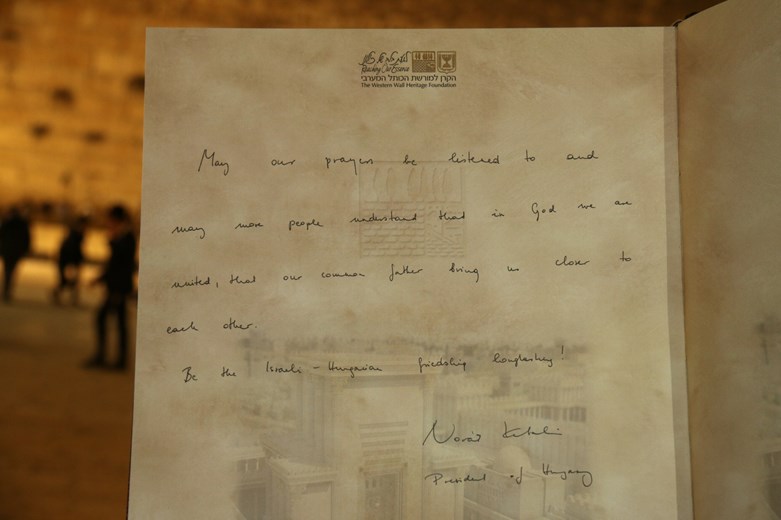 הקרן למורשת הכותל המערבי
The Western Wall Heritage Foundation
May our prayers be listened to and
may more people understand that in God we are
united, that our common father bring us closer to
each other.
Be the Israeli - Hungarian friendship longlasting!
Novák Katalin
President of Hungary